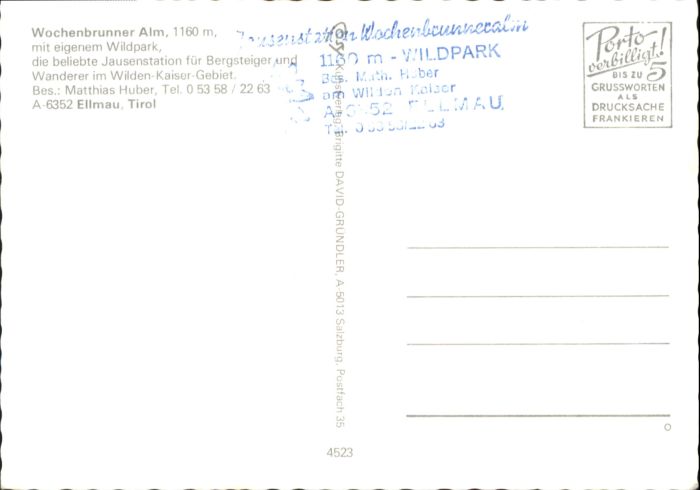 Wochenbrunner Alm, 1160 m,
mit eigenem Wildpark,
die beliebte Jausenstation für Bergsteiger und
Wanderer im Wilden-Kaiser-Gebiet.
Bes.: Matthias Huber, Tel. 0 53 58 / 22 63
A-6352 Ellmau, Tirol
Jausenstation Wochenbrunneralm
1160 m - WILDPARK
Bes. Math. Huber
am Wilden Kaiser
A-6352 ELLMAU
Tel. 0 53 58/22 63
Porto
verbilligt!
BIS ZU 5
GRUSSWORTEN
ALS
DRUCKSACHE
FRANKIEREN
Kunstverlag Brigitte DAVID-GRÜNDLER, A-5013 Salzburg, Postfach 35
4523